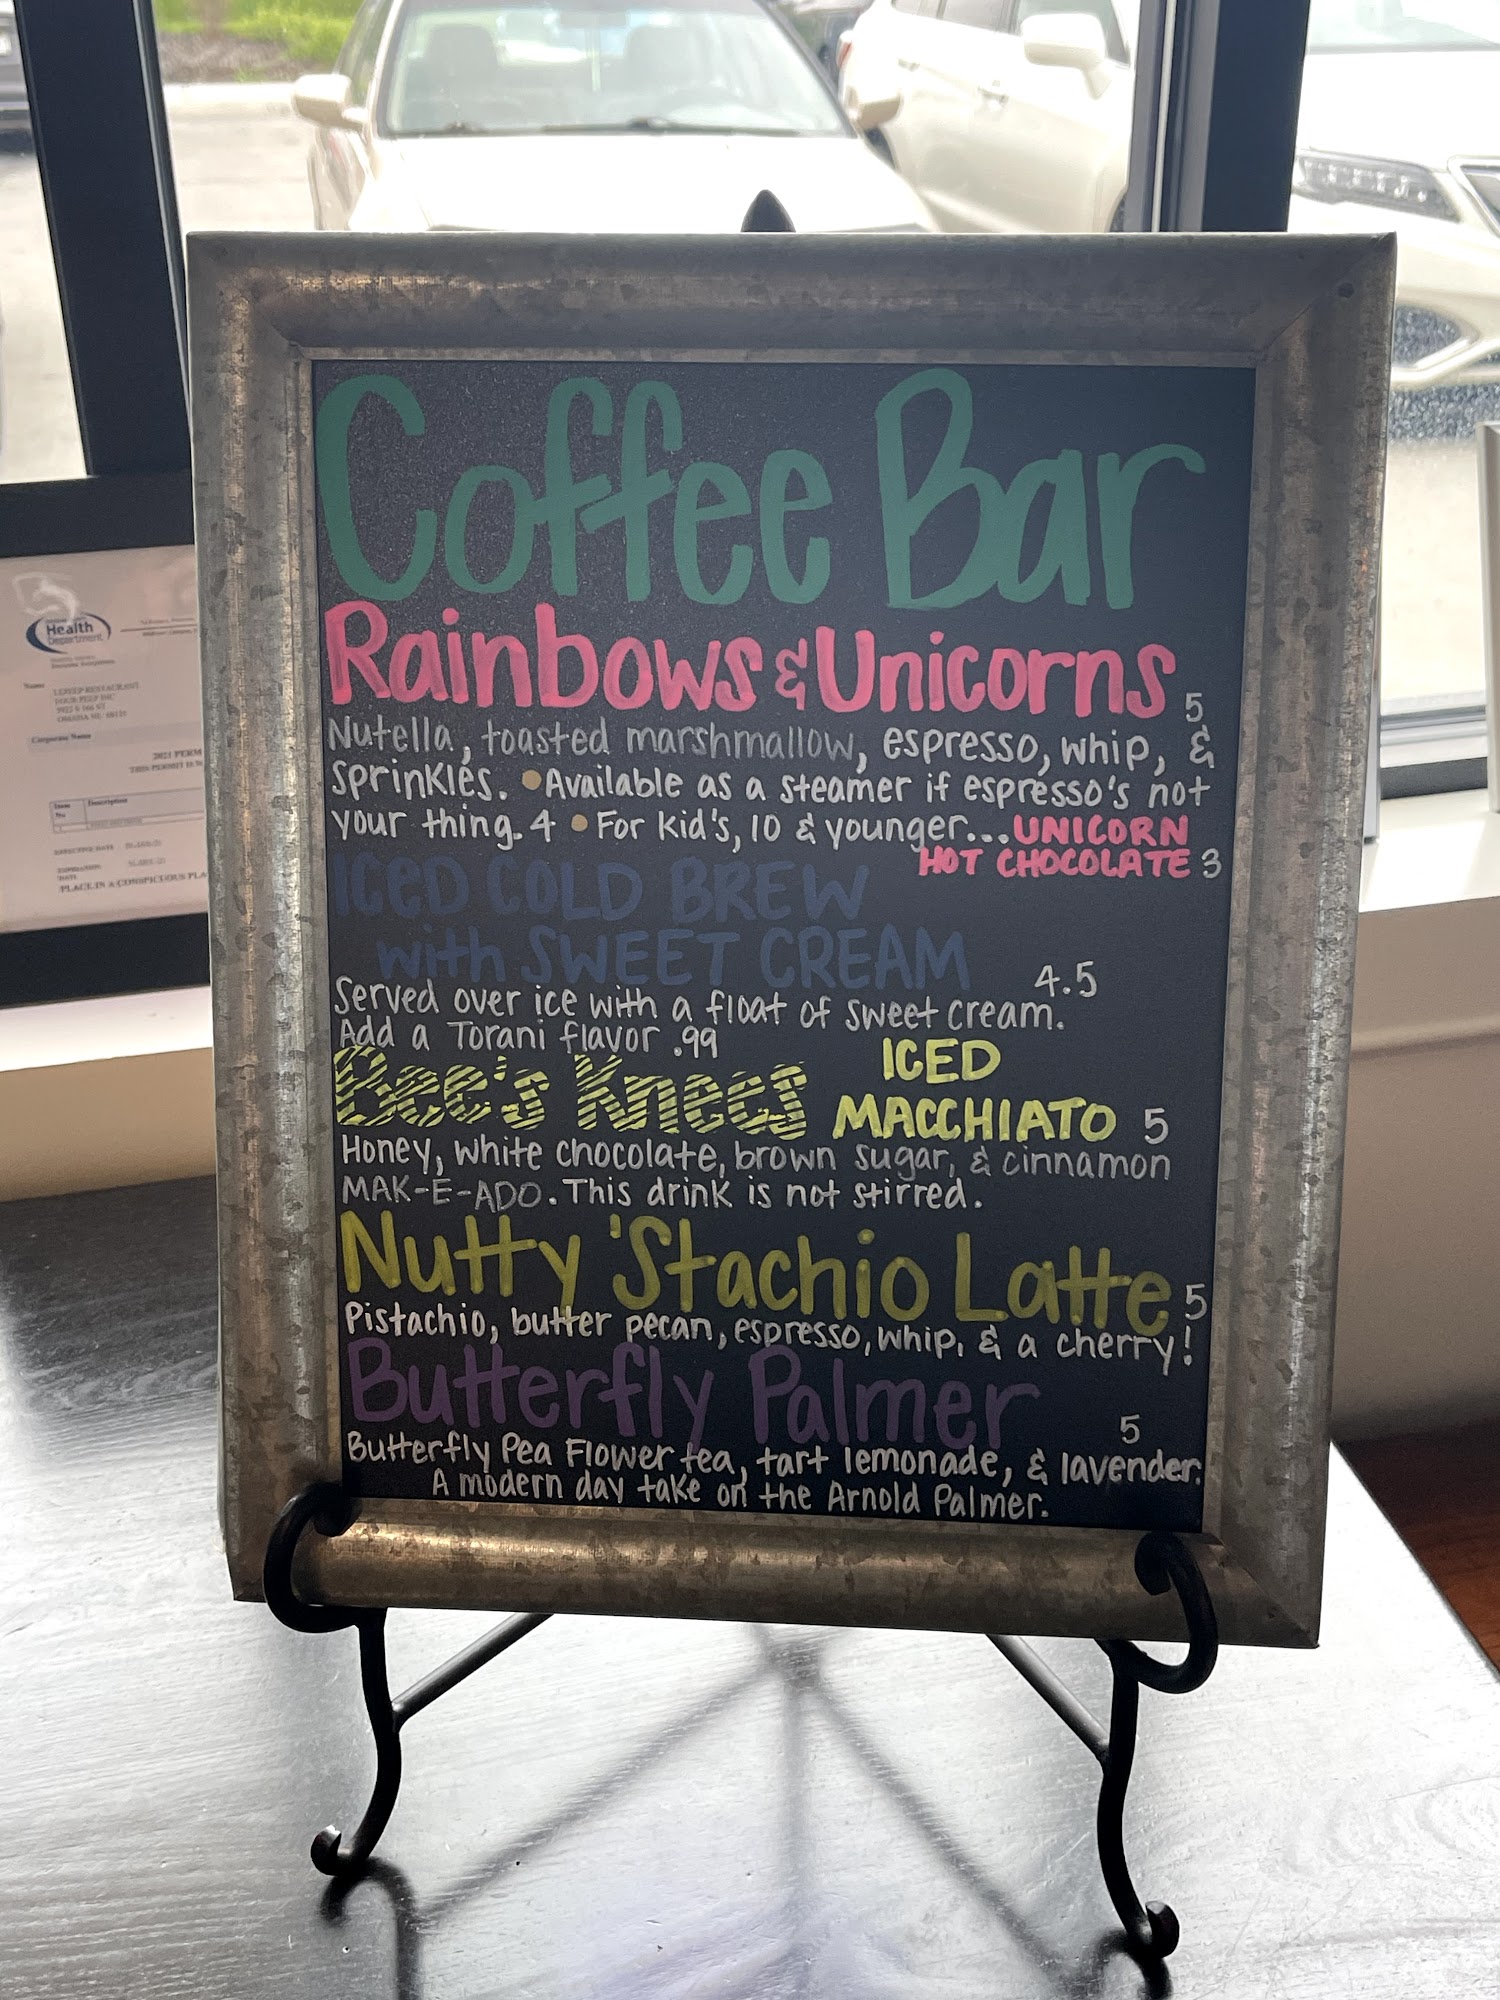 Coffee Bar
Rainbows & Unicorns 5
Nutella, toasted marshmallow, espresso, whip, &
sprinkles. • Available as a steamer if espresso's not
your thing. 4 • For kid's, 10 & younger... UNICORN
HOT CHOCOLATE 3
ICED COLD BREW
with SWEET CREAM 4.5
Served over ice with a float of sweet cream.
Add a Torani flavor .99
Bee's Knees ICED
MACCHIATO 5
Honey, white chocolate, brown sugar, & cinnamon
MAK-E-ADO. This drink is not stirred.
Nutty 'Stachio Latte 5
Pistachio, butter pecan, espresso, whip, & a cherry!
Butterfly Palmer 5
Butterfly Pea Flower tea, tart lemonade, & lavender.
A modern day take on the Arnold Palmer.
Health
Department
Name
LEPEEP RESTAURANT
Corporate Name
2021 PERM
Item Description
No
PLACE IN A CONSPICUOUS PLA